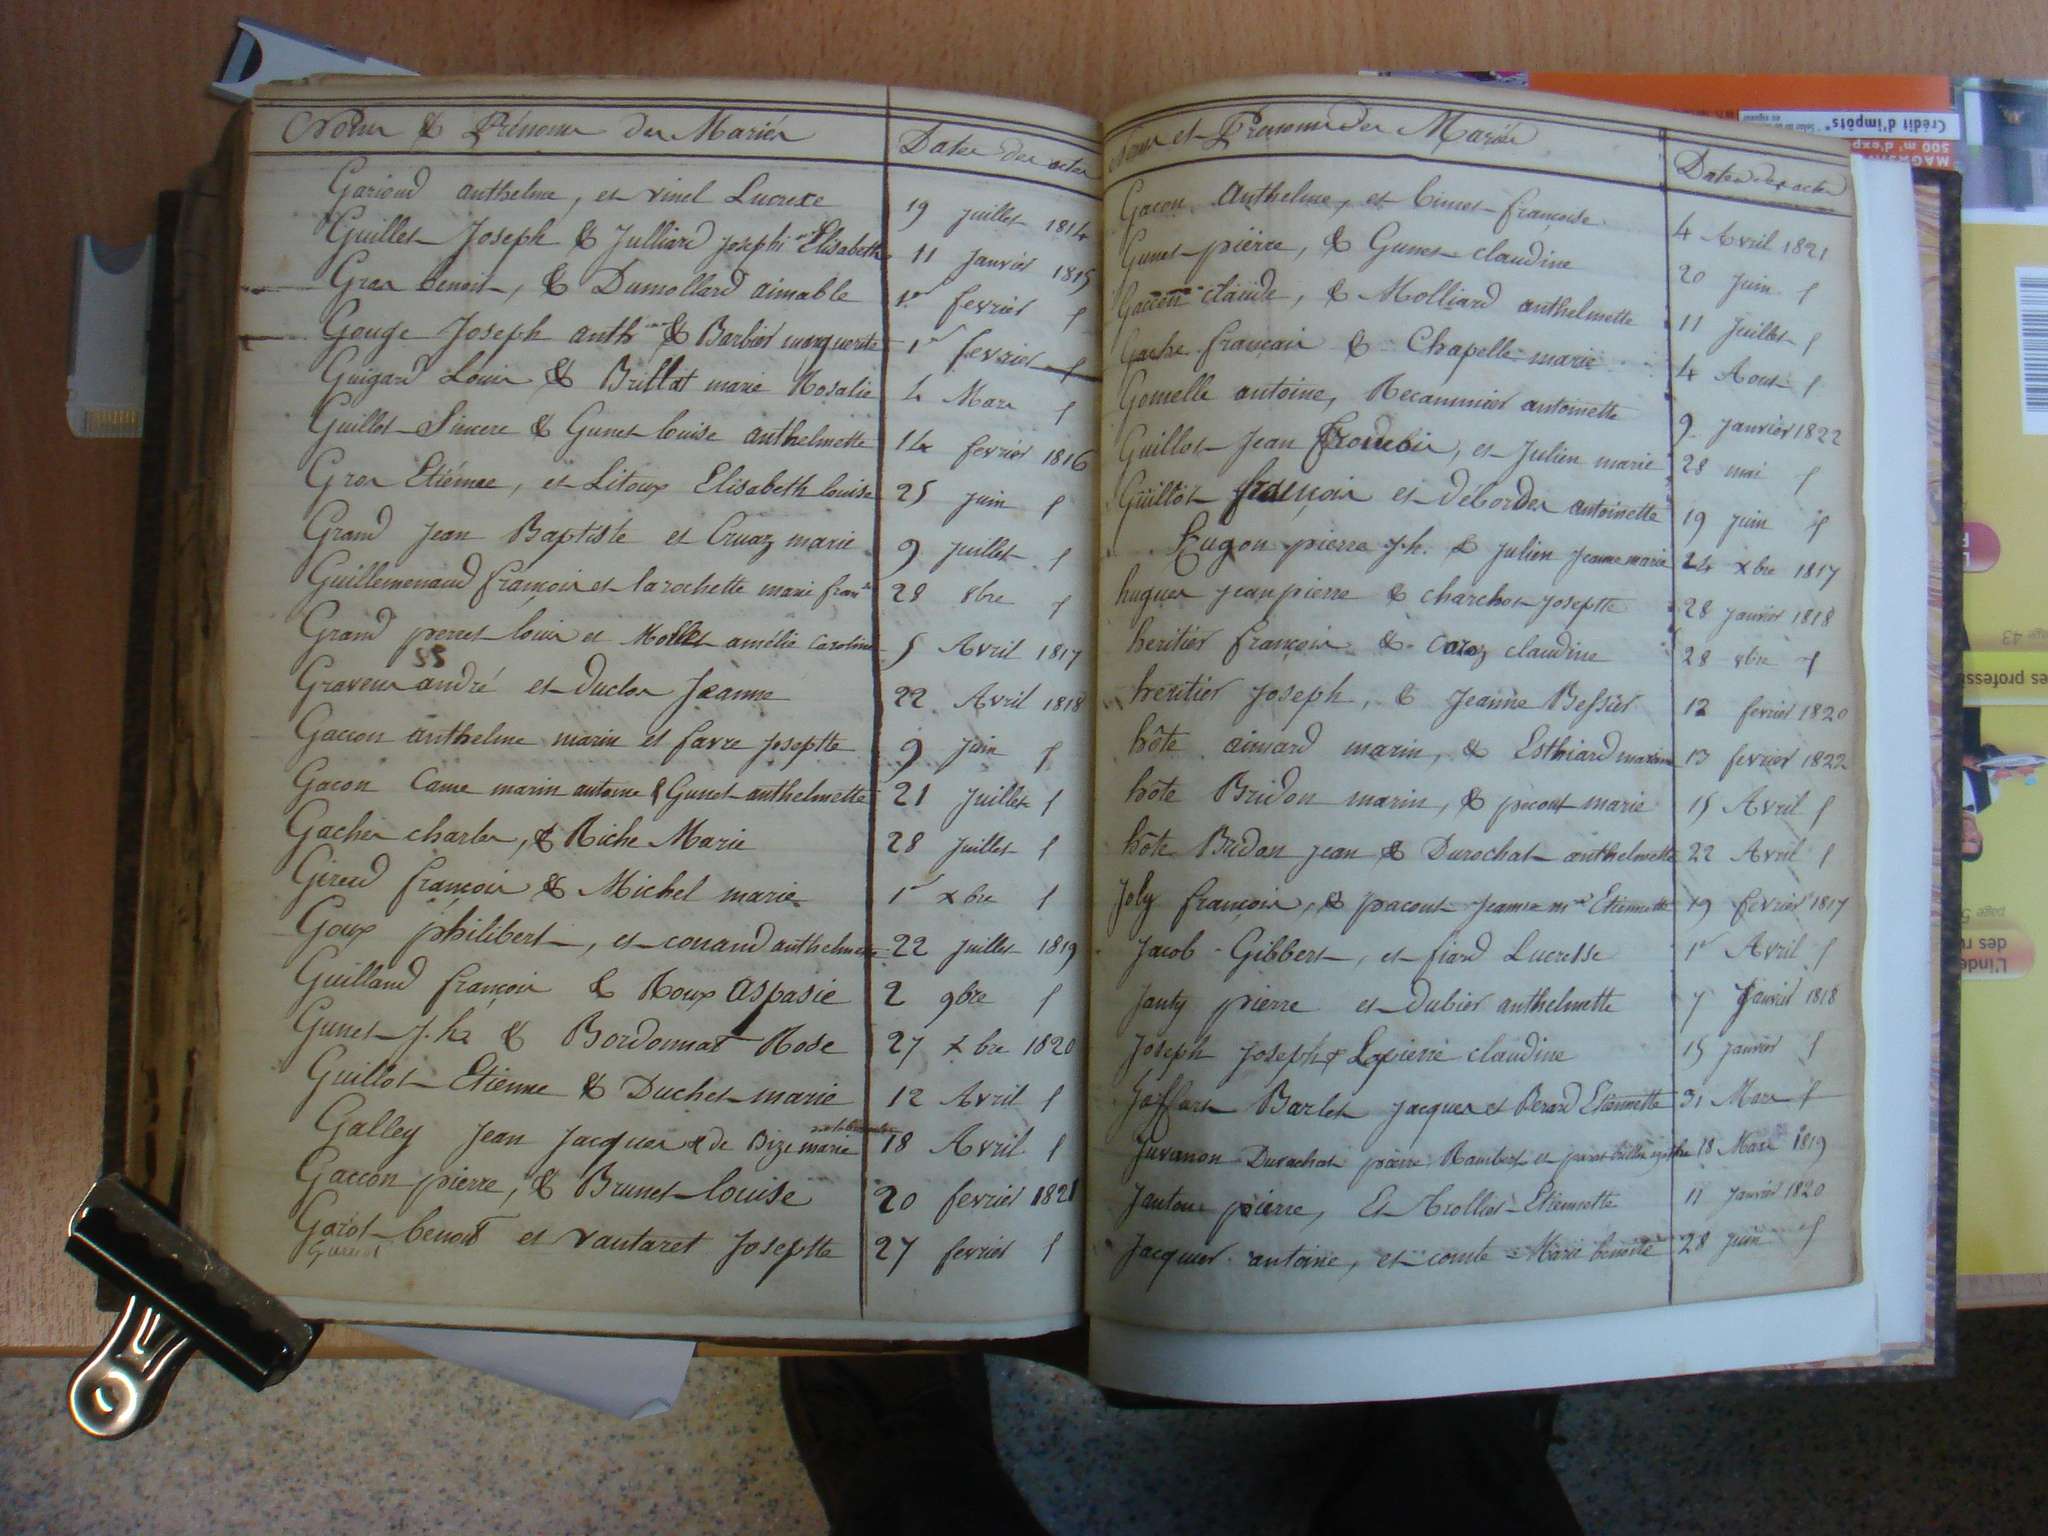 Noms & Prénoms des Mariés
Dates des actes
Garioud anthelme, et vinel Lucrece
19 Juillet 1814
Guillet Joseph & Julliard Josephte Elisabeth
11 Janvier 1815
Gros benoit, & Dumollard aimable
1er fevrier
Gouge Joseph anthme & Barbier marguerite
1er fevrier
Guigard Louis & Brillat marie Rosalie
4 Mars
Guillot Sincere & Gunet louise anthelmette
14 fevrier 1816
Gros Etiénne, et Litoux Elisabeth louise
25 juin
Grand jean Baptiste et Cruaz marie
9 Juillet
Guillemenaud françois et larochette marie franse
28 8bre
Grand perret louis et Mollet amélie Caroline
5 Avril 1817
Graveur andré et duclos Jeanne
22 Avril 1818
Gaccon anthelme marin et favre josephte
9 Juin
Gacon Came marin antoine & Gunet anthelmette
21 Juillet
Gacher charles, & Riche Marie
28 Juillet
Gireud françois & Michel marie
1er xbre
Goux philibert, et conand anthelmette
22 Juillet 1819
Guilland françois & Roux Aspasie
2 9bre
Gunet J.h & Bordonnat Rose
27 xbre 1820
Guillot Etienne & Duchet marie
12 Avril
Galley Jean Jacques & de Bize marie
18 Avril
Gaccon pierre, & Brunet louise
20 fevrier 1821
Garot benoit et vautaret Josephte
27 fevrier
Noms et Prenoms des Mariés
Dates des actes
Gacon Anthelme, et binet françoise
4 Avril 1821
Gunet pierre, & Gunet claudine
20 Juin
Gaccon claude, & Molliard anthelmette
11 Juillet
Gache françois & Chapelle marie
4 Aout
Gomelle antoine, Recammier antoinette
9 Janvier 1822
Guillot Jean, et Julien marie
28 mai
Guillot françois et débordes antoinette
19 Juin
Hugon pierre J.h. & Julien Jeanne marie
24 xbre 1817
hugues jean pierre & charchot Josephte
28 Janvier 1818
heritier françois & Caraz claudine
28 8bre
heritier Joseph, & Jeanne Bessier
12 fevrier 1820
hôte aimard marin, & Esthiard mariane
13 fevrier 1822
hôte Bridon marin, & pacout marie
15 Avril
hôte Bridon jean & Durochat anthelmette
22 Avril
Joly françois, & pacout Jeanne mie Etiennette
19 fevrier 1817
Jacob Gibbert, et fiard Lucresse
1er Avril
Janty pierre et dubier anthelmette
7 Janvier 1818
Joseph Joseph & Lapierre claudine
15 Janvier
Joffart Barlet jacques et Berard Etiennette
31 Mars
Juvanon Durochat pierre Rambert et
18 Mars 1819
Jantous pierre, Et Arolliet Etiennette
11 Janvier 1820
Jacquier antoine, et comte Marie benoite
28 Juin
Crédit d'impôts